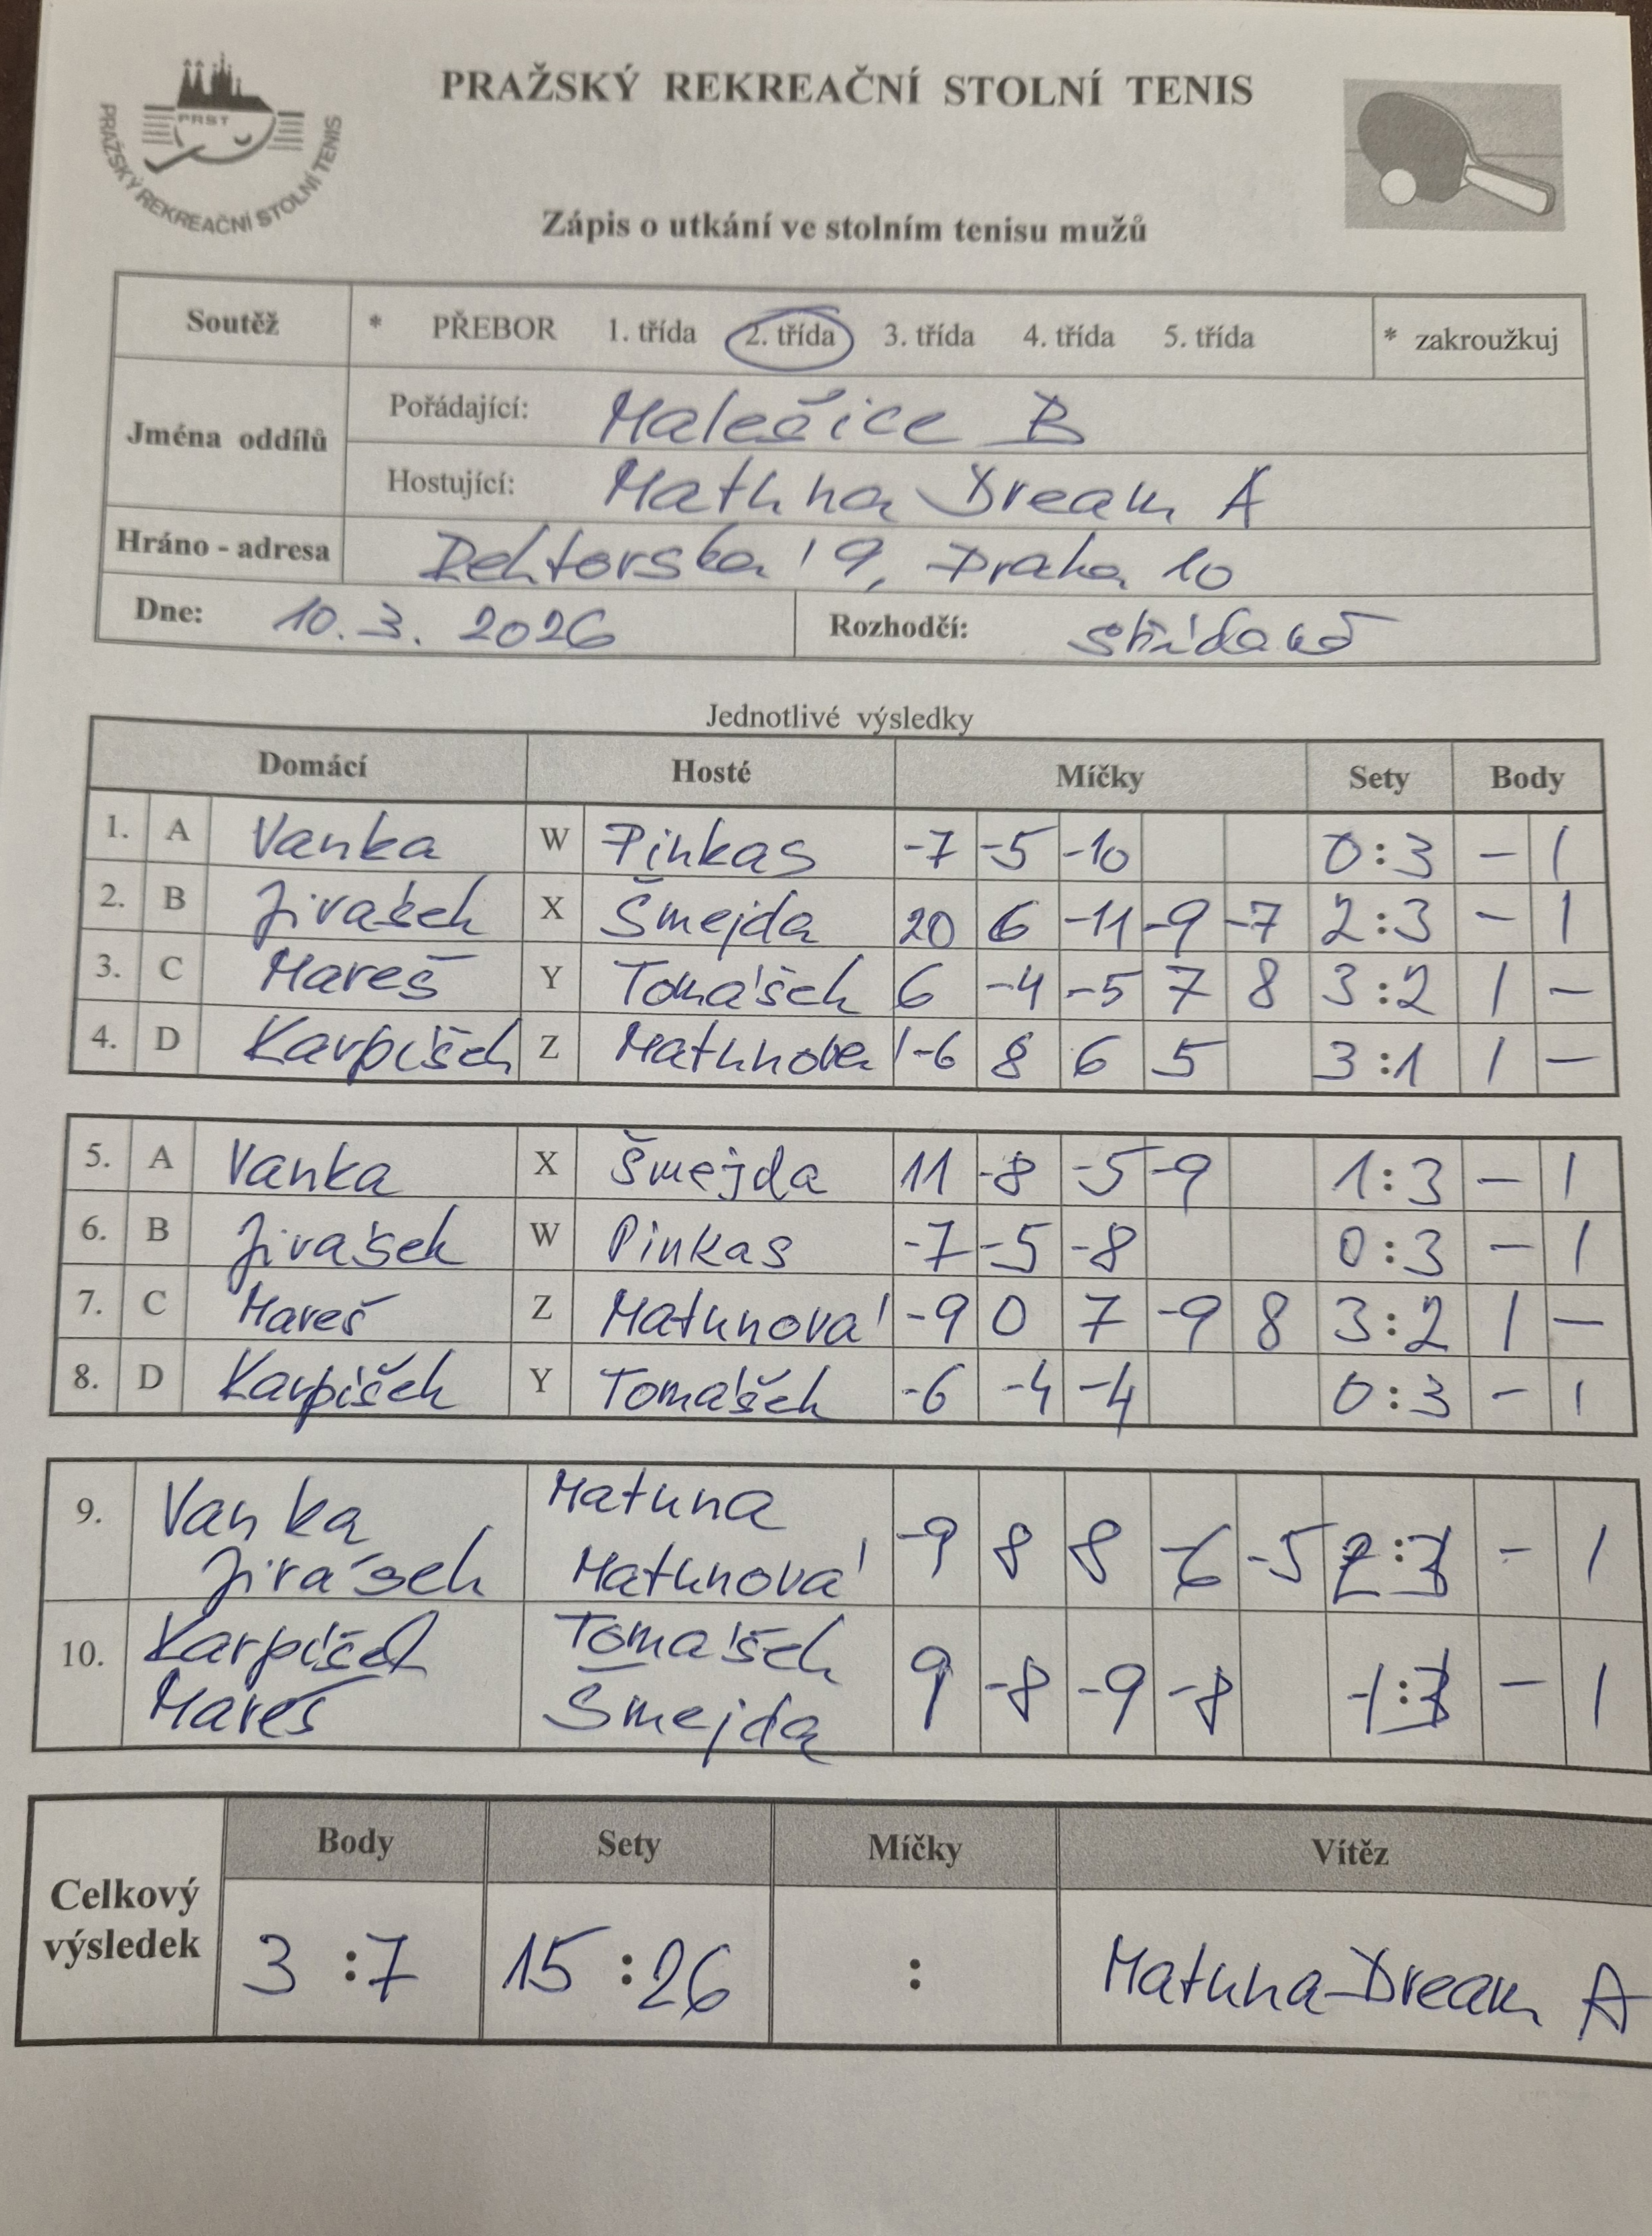 PRST
PRAŽSKÝ REKREAČNÍ STOLNÍ TENIS
PRAŽSKÝ REKREAČNÍ STOLNÍ TENIS
Zápis o utkání ve stolním tenisu mužů
Soutěž * PŘEBOR 1. třída 2. třída 3. třída 4. třída 5. třída * zakroužkuj
Jména oddílů
Pořádající: Malešice B
Hostující: Matuna Dream A
Hráno - adresa Rektorská 9, Praha 10
Dne: 10. 3. 2026 Rozhodčí: střídavě
Jednotlivé výsledky
Domácí Hosté Míčky Sety Body
1. A Vanka W Pinkas -7 -5 -10 0:3 - 1
2. B Jirásek X Šmejda 20 6 -11 -9 -7 2:3 - 1
3. C Mareš Y Tomášek 6 -4 -5 7 8 3:2 1 -
4. D Karpíšek Z Matunová -6 8 6 5 3:1 1 -
5. A Vanka X Šmejda 11 -8 -5 -9 1:3 - 1
6. B Jirásek W Pinkas -7 -5 -8 0:3 - 1
7. C Mareš Z Matunová -9 0 7 -9 8 3:2 1 -
8. D Karpíšek Y Tomášek -6 -4 -4 0:3 - 1
9. Vanka Matuna
Jirásek Matunová -9 8 8 -6 -5 2:3 - 1
10. Karpíšek Tomášek
Mareš Šmejda 9 -8 -9 -8 1:3 - 1
Celkový výsledek
Body Sety Míčky Vítěz
3:7 15:26 : Matuna Dream A